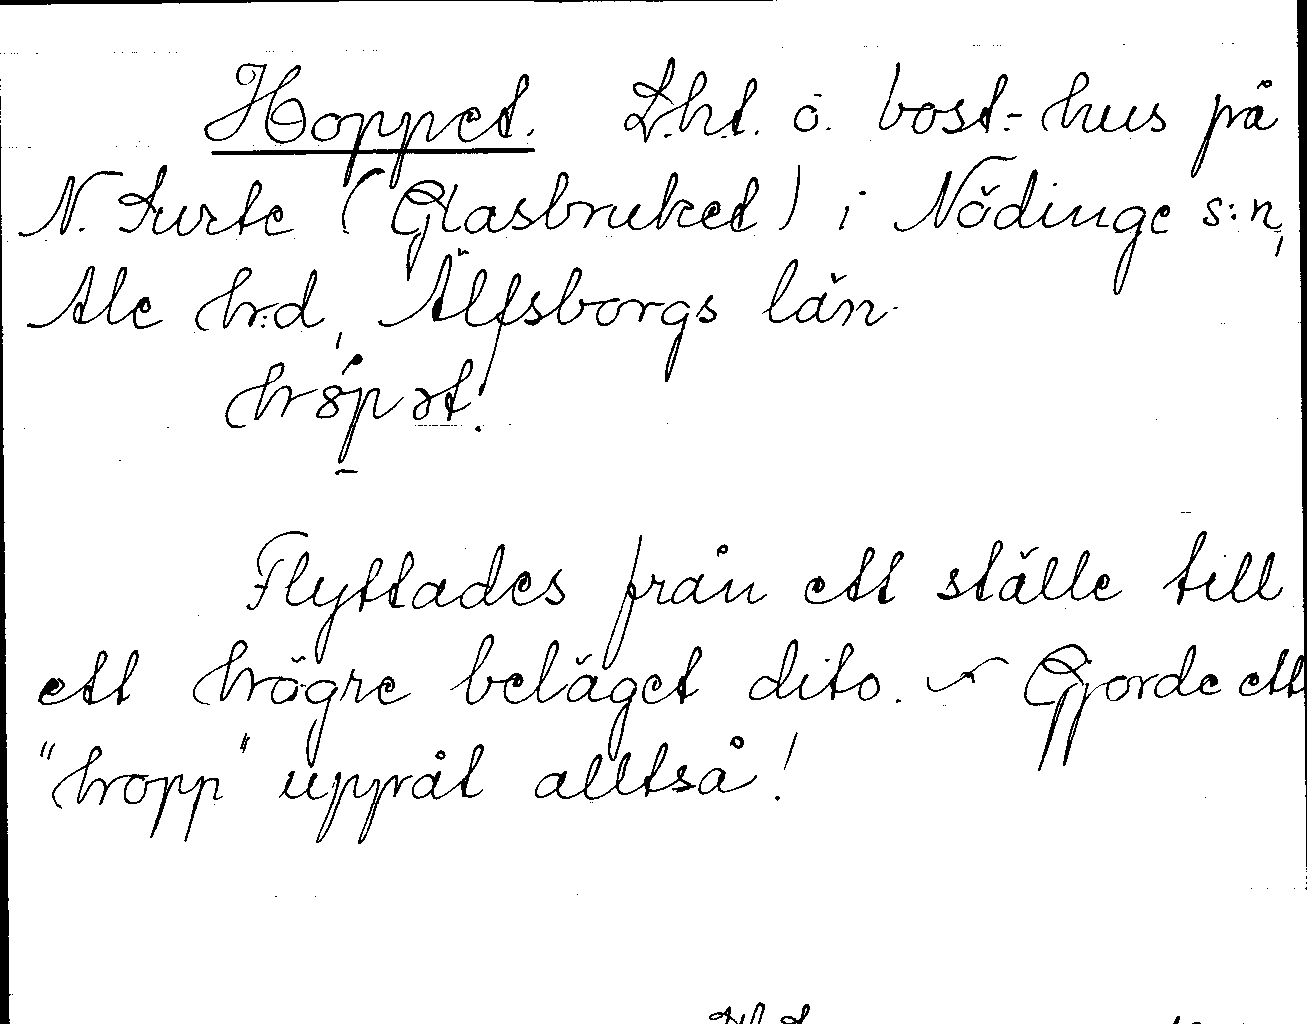 Hoppet. Lht. o. bost.-hus på
N. Surte (Glasbruket) i Nödinge s:n,
Ale h:d, Älfsborgs län.
Flyttades från ett ställe till
ett högre beläget dito. - Gjorde ett
"hopp" uppåt alltså!